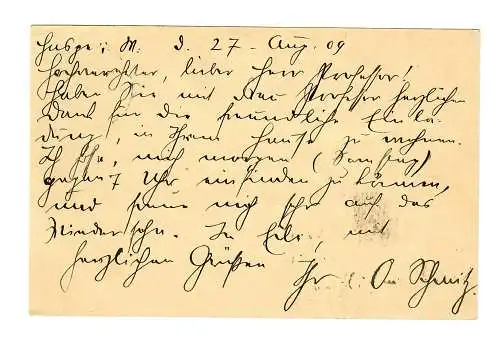 d. 27. Aug. 09
Hochverehrter, lieber Herr Professor!
Haben Sie mit Frau Professor herzlichen
Dank für die freundliche Einla-
dung, in Ihrem Hause zu wohnen.
Ich hoffe, mich morgen (Samstag)
gegen 7 Uhr einfinden zu können,
und freue mich sehr auf das
Wiedersehn. In Eile, mit
herzlichen Grüßen
Ihr Schmitz.